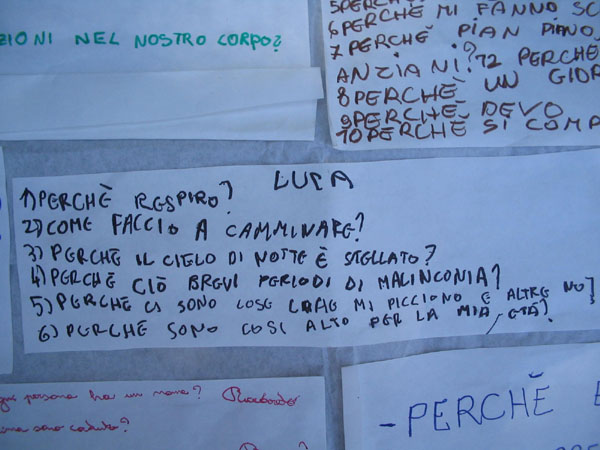 ZIONI NEL NOSTRO CORPO?
5PERCHÈ
6PERCHÈ MI FANNO SC
7PERCHÈ PIAN PIANO
ANZIANI?
PERCHÈ
8PERCHÈ UN GIOR
9PERCHÈ DEVO
10PERCHÈ SI COMP
LUCA
1) PERCHÈ RESPIRO?
2) COME FACCIO A CAMMINARE?
3) PERCHE IL CIELO DI NOTTE È STELLATO?
4) PERCHE CIÒ BREVI PERIODI DI MALINCONIA?
5) PERCHE CI SONO COSE CHE MI PICCIONO E ALTRE NO?
6) PERCHE SONO COSI ALTO PER LA MIA ETÀ?
persona ha un nome? Riccardo
sono caduto?
-PERCHÈ